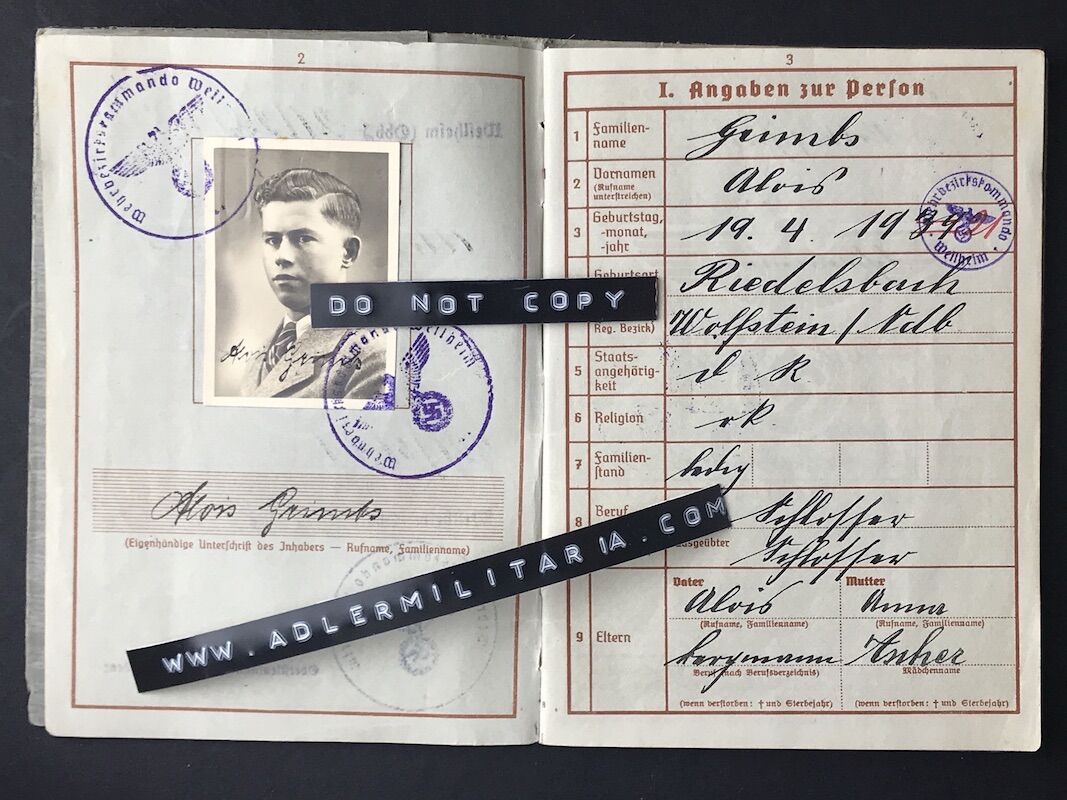 2
Wehrbezirkskommando Weil
Alois Grimbs
DO NOT COPY
Weilheim
Alois Grimbs
(Eigenhändige Unterschrift des Inhabers — Rufname, Familienname)
WWW.ADLERMILITARIA.COM
3
I. Angaben zur Person
1 Familien-
name
Grimbs
2 Vornamen
(Rufname
unterstreichen)
Alois
3 Geburtstag,
-monat,
-jahr
19. 4. 19 21
Wehrbezirkskommando
Weilheim
Geburtsort
Reg. Bezirk)
Riedelsbach
Wolfstein / Ndb
5 Staats-
angehörig-
keit
d R.
6 Religion
rk.
7 Familien-
stand
ledig
8 Beruf
Schlosser
ausgeübter
Schlosser
9 Eltern
Vater
Alois
(Rufname, Familienname)
Bergmann
Beruf (nach Berufsverzeichnis)
(wenn verstorben: † und Sterbejahr)
Mutter
Anna
(Rufname, Familienname)
Mädchenname
(wenn verstorben: † und Sterbejahr)